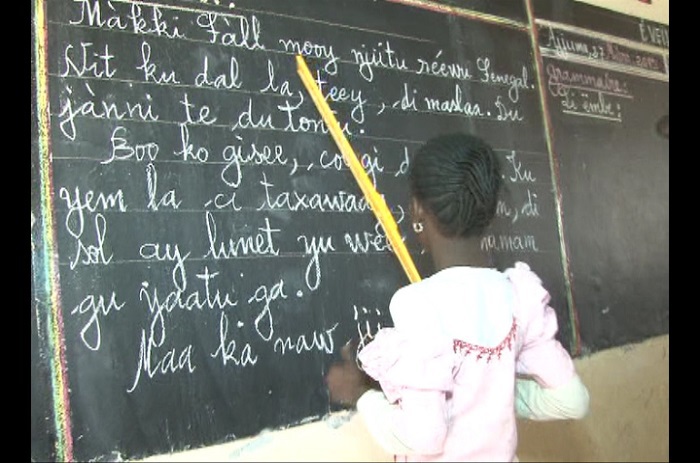 Màkki Fàll mooy njiitu réewu Senegal.
Nit ku dal la, teey, di maslaa. Du
jànni te du tontu.
Boo ko gisee,
Ku
yem la ci taxawaay, di
sol ay lunet yu
mam
gu yaatu ga.
Maa ka naw
ÉVEIL
Ajjuma, 27
grammaire:
Li ëmbe: